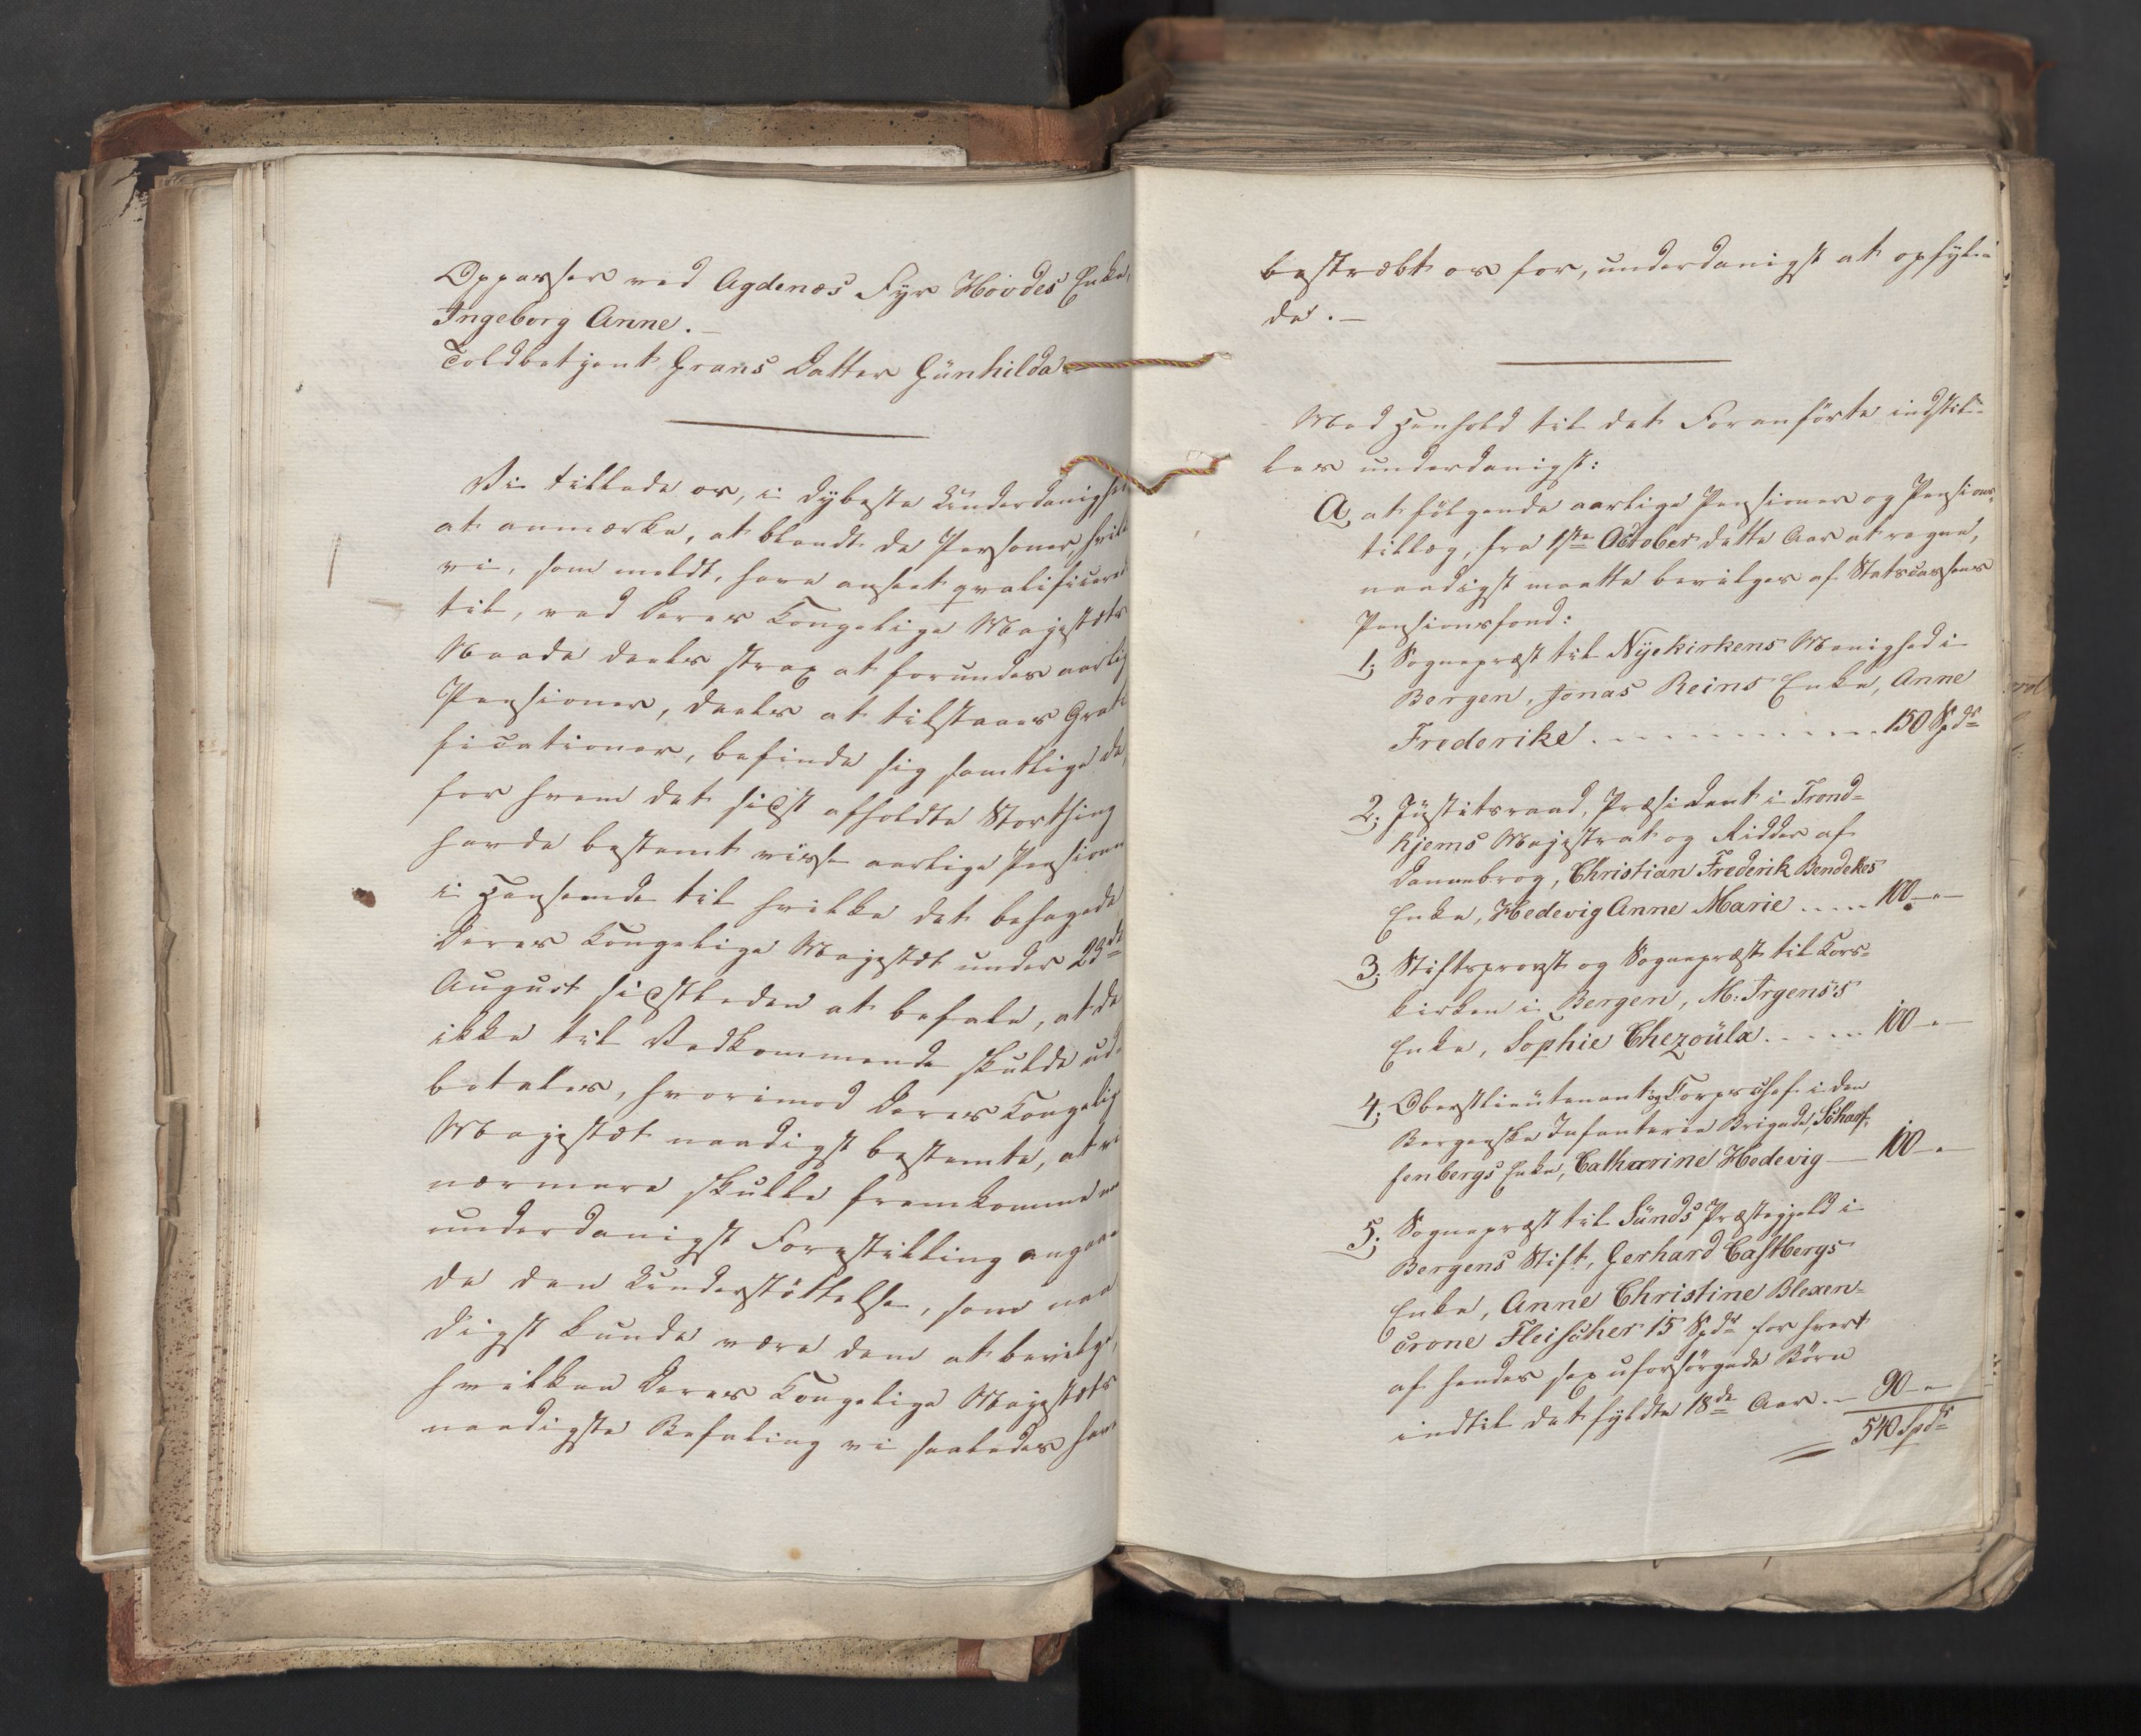 Oppasser ved Agdenæs Fyr Hovdes Enke,
Ingeborg Anne. —
Toldbetjent Grans Datter Günhilda.
Vi tillade os, i dybeste Underdanighed
at anmærke, at blandt de Personer, hvilke
vi, som meldt, have anseet qvalificerede
til, ved Deres Kongelige Majestæts
Naade deels strax at forundes aarlig
Pensioner, deels at tilstaaes Grati-
ficationer, befinde sig samtlige de,
for hvem det sidst afholdte Storthing
havde bestemt visse aarlige Pensioner
i Henseende til hvilke det behagede
Deres Kongelige Majestæt under 23de
August sidstleden at befale, at de
ikke til Vedkommende skulde ud-
betales, hvorimod Deres Kongelige
Majestæt naadigst bestemte, at vi
nærmere skulle fremkomme med
underdanigst Forestilling angaaen-
de den Understöttelse, som naa-
digst kunde være dem at bevilge,
hvilken Deres Kongelige Majestæts
naadigste Befaling vi saaledes have
bestræbt os for, underdanigst at opfyl-
de. —
Med Henhold til det Foranförte indstil-
les underdanigst:
A, at fölgende aarlige Pensioner og Pensions-
tillæg, fra 1ste October dette Aar at regne,
naadigst maatte bevilges af Statscassens
Pensionsfond:
1; Sognepræst til Nÿekirkens Menighed i
Bergen, Jonas Reins Enke, Anne
Frederike . . . . . . . . . . 150 Spdr
2; Jüstitsraad, Præsident i Trond-
hjems Magistrat og Ridder af
Dannebrog, Christian Frederik Bendekes
Enke, Hedevig Anne Marie . . . . . 100 — " —
3; Stiftsprovst og Sognepræst til Kors-
kirken i Bergen, M: Irgens's
Enke, Sophie Chezoüla . . . . . . 100 — " —
4; Oberstlieutenant og Corpschef i den
Bergenske Infanterie Brigade, Scharf-
fenbergs Enke, Catharine Hedevig — 100 — "
5; Sognepræst til Sünds Præstegjeld i
Bergens Stift, Gerhard Castbergs
Enke, Anne Christine Blexen-
crone Fleischer 15 Spdr for hvert
af hendes sex uforsörgede Börn
indtil det fyldte 18de Aar . — 90 — "
540 Spdr